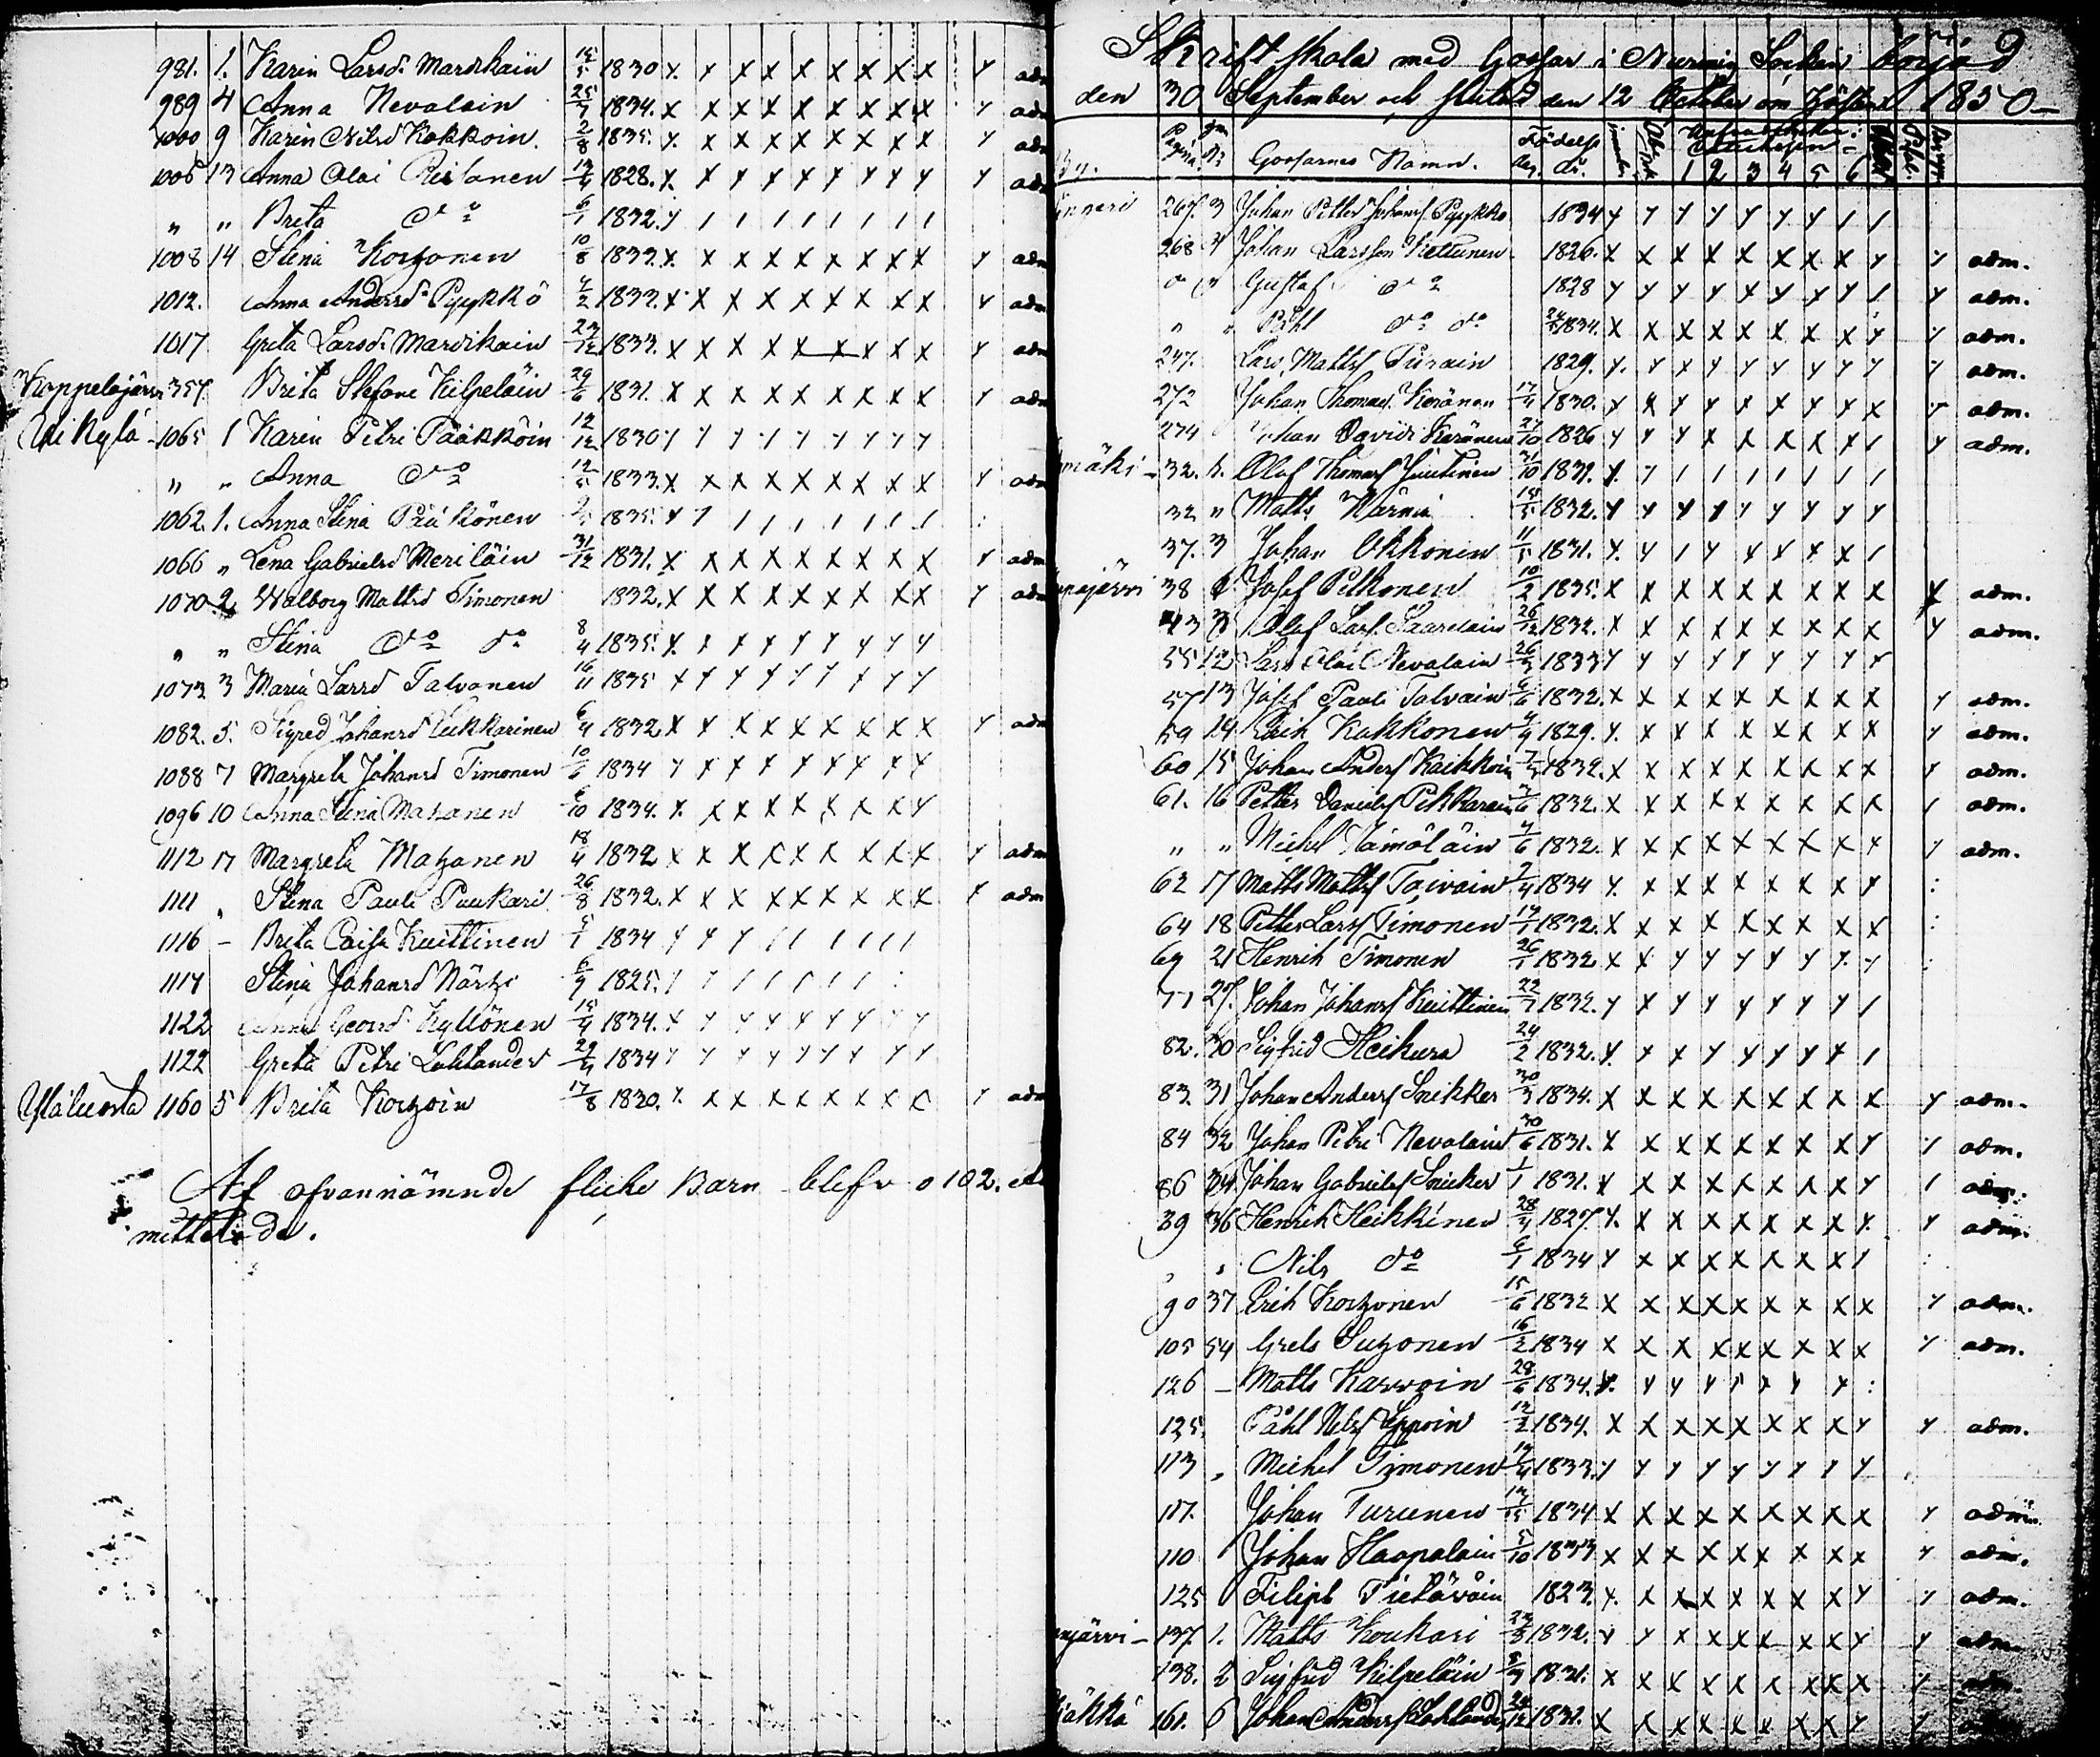 981. 1. Karin Larsd. Mardikain 12/5 1830 x x x x x x x x x x adm
989 4 Anna Nevalain 25/7 1834. x x x x x x x x x x adm
1000 9 Karin Nilsd Kokkoin. 2/8 1835. x x x x x x x x x x adm
1006 13 Anna Olai 1828. x x x x x x x x x x adm
" " Brita do 6/1 1832. x / / / / / / / /
1008 14 Stina Korhonen 10/8 1833. x x x x x x x x x x adm
1012. Anna Andersd. Pyykkö 4/2 1832. x x x x x x x x x x adm
1017 Greta Larsd. Mardikain 1833. x x x x x x x x x x adm
Koppelojärvi 357. Brita Stefani Kilpeläin 29/6 1831. x x x x x x x x x x adm
1065 1 Karin Petri Pääkköin 12/12 1830 x x x x x x x x x
" " Anna do 12/5 1833. x x x x x x x x x x adm
1062. 1. Anna Stina 1835. x x / / / / / / /
1066 " Lena Gabrielsd Meriläin 31/12 1831. x x x x x x x x x x adm
1070 2 Walborg Mattsd Timonen 1832. x x x x x x x x x x adm
" " Stina do do 8/4 1835. x x x x x x x x x
1073 3 Maria Larsd Talvanen 16/11 1835 x x x x x x x x x
1082. 5. Sigred Johansd 6/4 1832 x x x x x x x x x x adm
1088 7 Margreta Johansd Timonen 10/6 1834 x x x x x x x x x
1096 10 Anna Stina 1834. x x x x x x x x x
1112 17 Margreta 18/4 1832 x x x x x x x x x x adm
1111 " Stina Pauli Puukari 26/8 1832. x x x x x x x x x x adm
1116 – Brita Caisa Kuittinen 1834 x x x / / / / / /
1117 Stina Johansd 6/9 1825. / / / / / / / /
1122 Anna Georsd. Kyllönen 15/4 1834. x x x x x x x x x
1122 Greta Petri Lohlander 1834 x x x x x x x x x
Yläluosta 1160 5 Brita Korhoin 17/8 1830. x x x x x x x x x x adm
Af ofvannämnde flicke Barn blefvo 102. ad
mitterade.
Skriftskola med Gossar i Nurmis Socken börjad
den 30 September och slutad den 12 October om Hösten 1850–
By. Pagina No Gossarnes Namn. Födelse dag år. 1 2 3 4 5 6
267. 3 Johan Petter Johanss. Pyykkö 1834 x x x x x x x / /
268 4 Johan Larsson Kettunen 1826. x x x x x x x x x x adm.
Gustaf do 1828 x x x x x x x x / x adm.
" " Påhl do do 1834. x x x x x x x x x x adm.
247. Lars Mattss. 1829. x x x x x x x x x x adm.
272 Johan Thomass. Keränen 17/4 1830. x x x x x x x x x x adm.
274 Johan Davids Keränen 27/10 1826 x x x x x x x x / x adm.
32. 2. Olof Thomass Juutinen 31/10 1832. x / / / / / / / /
32 " Matts Närhi 15/5 1832. x x x x x x x x x
37. 3 Johan Okkonen 11/5 1831. x x / x x x x x /
38 Josef Pelkonen 10/2 1835. x x x x x x x x x x adm.
Olof Larss. Saarelain 26/12 1832. x x x x x x x x x x adm.
55 12 Lars Olai Nevalain 26/3 1833 x x x x x x x x x
57 13 Josef Pauli Talvain 6/6 1832. x x x x x x x x x x adm.
59 14 Erich Kokkonen 4/9 1829. x x x x x x x x x x adm.
60 15 Johan Anderss Kaikkoin 1832. x x x x x x x x x x adm.
61. 16 Petter Danielss Pikkarain 1832. x x x x x x x x x x adm.
" " Michel Hämöläin 4/6 1832. x x x x x x x x x x adm.
62 17 Matts Mattss Toivain 1834 x x x x x x x x x :
64 18 Petter Larss Timonen 1832. x x x x x x x x x :
69 21 Henrich Timonen 26/1 1832 x x x x x x x x x :
77 27. Johan Johanss Kuittinen 22/7 1832. x x x x x x x x /
82. 30 Sigfrid Heikura 24/2 1832. x x x x x x x x /
83 31 Johan Anderss Snikker 30/3 1834. x x x x x x x x x x adm.
84 32 Johan Petri Nevalain 30/6 1831. x x x x x x x x x x adm.
86 34 Johan Gabrielss Snicker 1/1 1831. x x x x x x x x x / adm.
89 36 Henrich Heikkinen 28/4 1827. x x x x x x x x x x adm.
" " Nils do 6/1 1834 x x x x x x x x / :
90 37 Erich Korhonen 15/6 1832 x x x x x x x x x x adm.
105 54 Grels Suhonen 16/2 1834 x x x x x x x x x x adm.
126 – Matts Karvoin 28/6 1834. x x x x x x x x :
125. Påhl Nilss Eppoin 12/2 1834. x x x x x x x x x x adm.
113 " Michel Tymonen 1833. x x x x x x x x x
117. Johan Turunen 1834 x x x x x x x x x x adm.
110 Johan Haapalain 5/10 1833 x x x x x x x x x x adm.
125 Filipt Tietäväin 1823. x x x x x x x x x x adm.
137. 1. Matts Koukari 1832. x x x x x x x x x x adm.
138. 2 Sigfrid Kilpeläin 1831. x x x x x x x x x x adm.
161. 6 Johan Anderss Lohlander 1831. x x x x x x x x x x